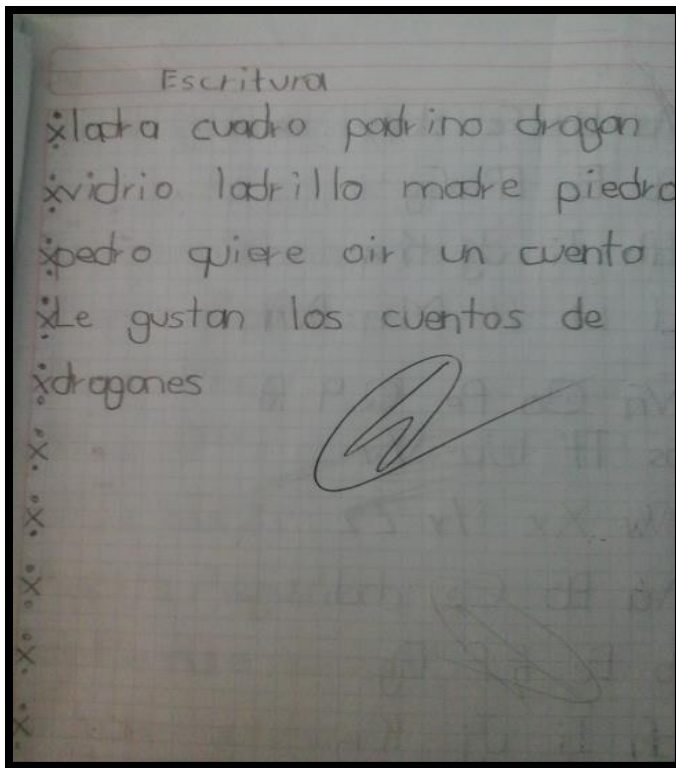 Escritura
ladra cuadro padrino dragon
vidrio ladrillo madre piedra
pedro quiere oir un cuento
Le gustan los cuentos de
dragones